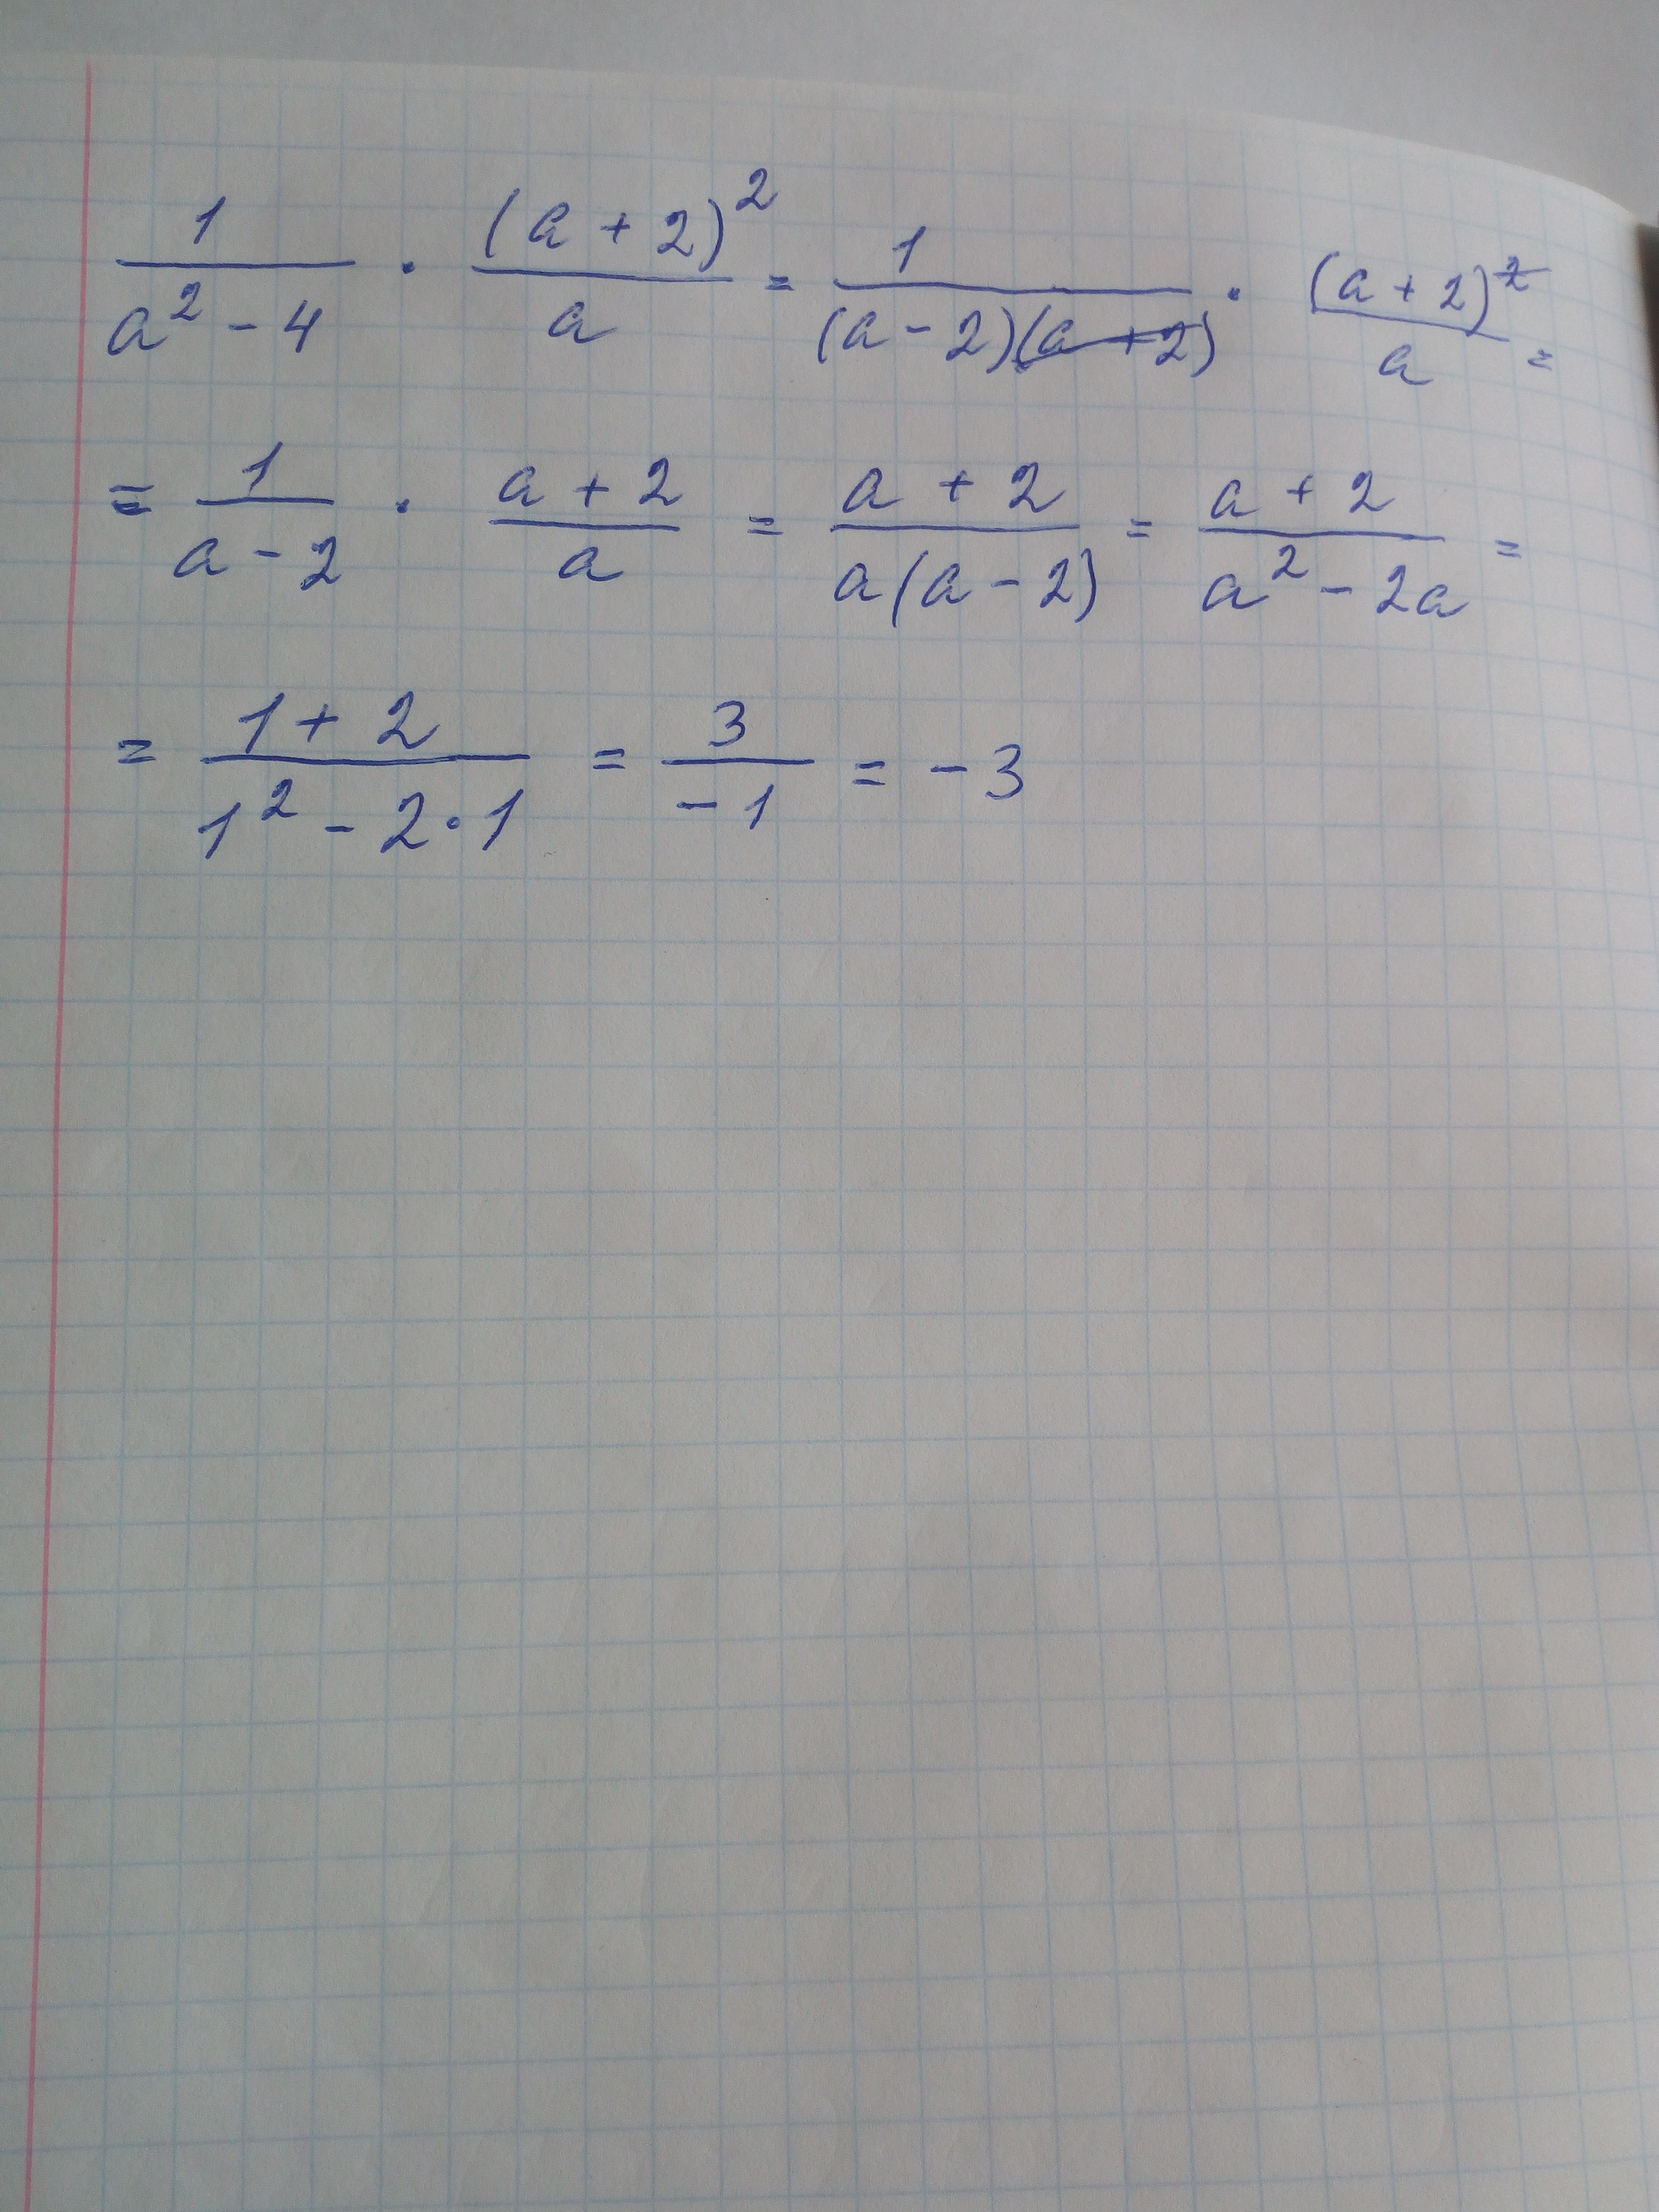 1/(a² - 4) · (a + 2)²/a = 1/((a - 2)(a + 2)) · (a + 2)²/a =
= 1/(a - 2) · (a + 2)/a = (a + 2)/(a(a - 2)) = (a + 2)/(a² - 2a) =
= (1 + 2)/(1² - 2·1) = 3/(-1) = -3